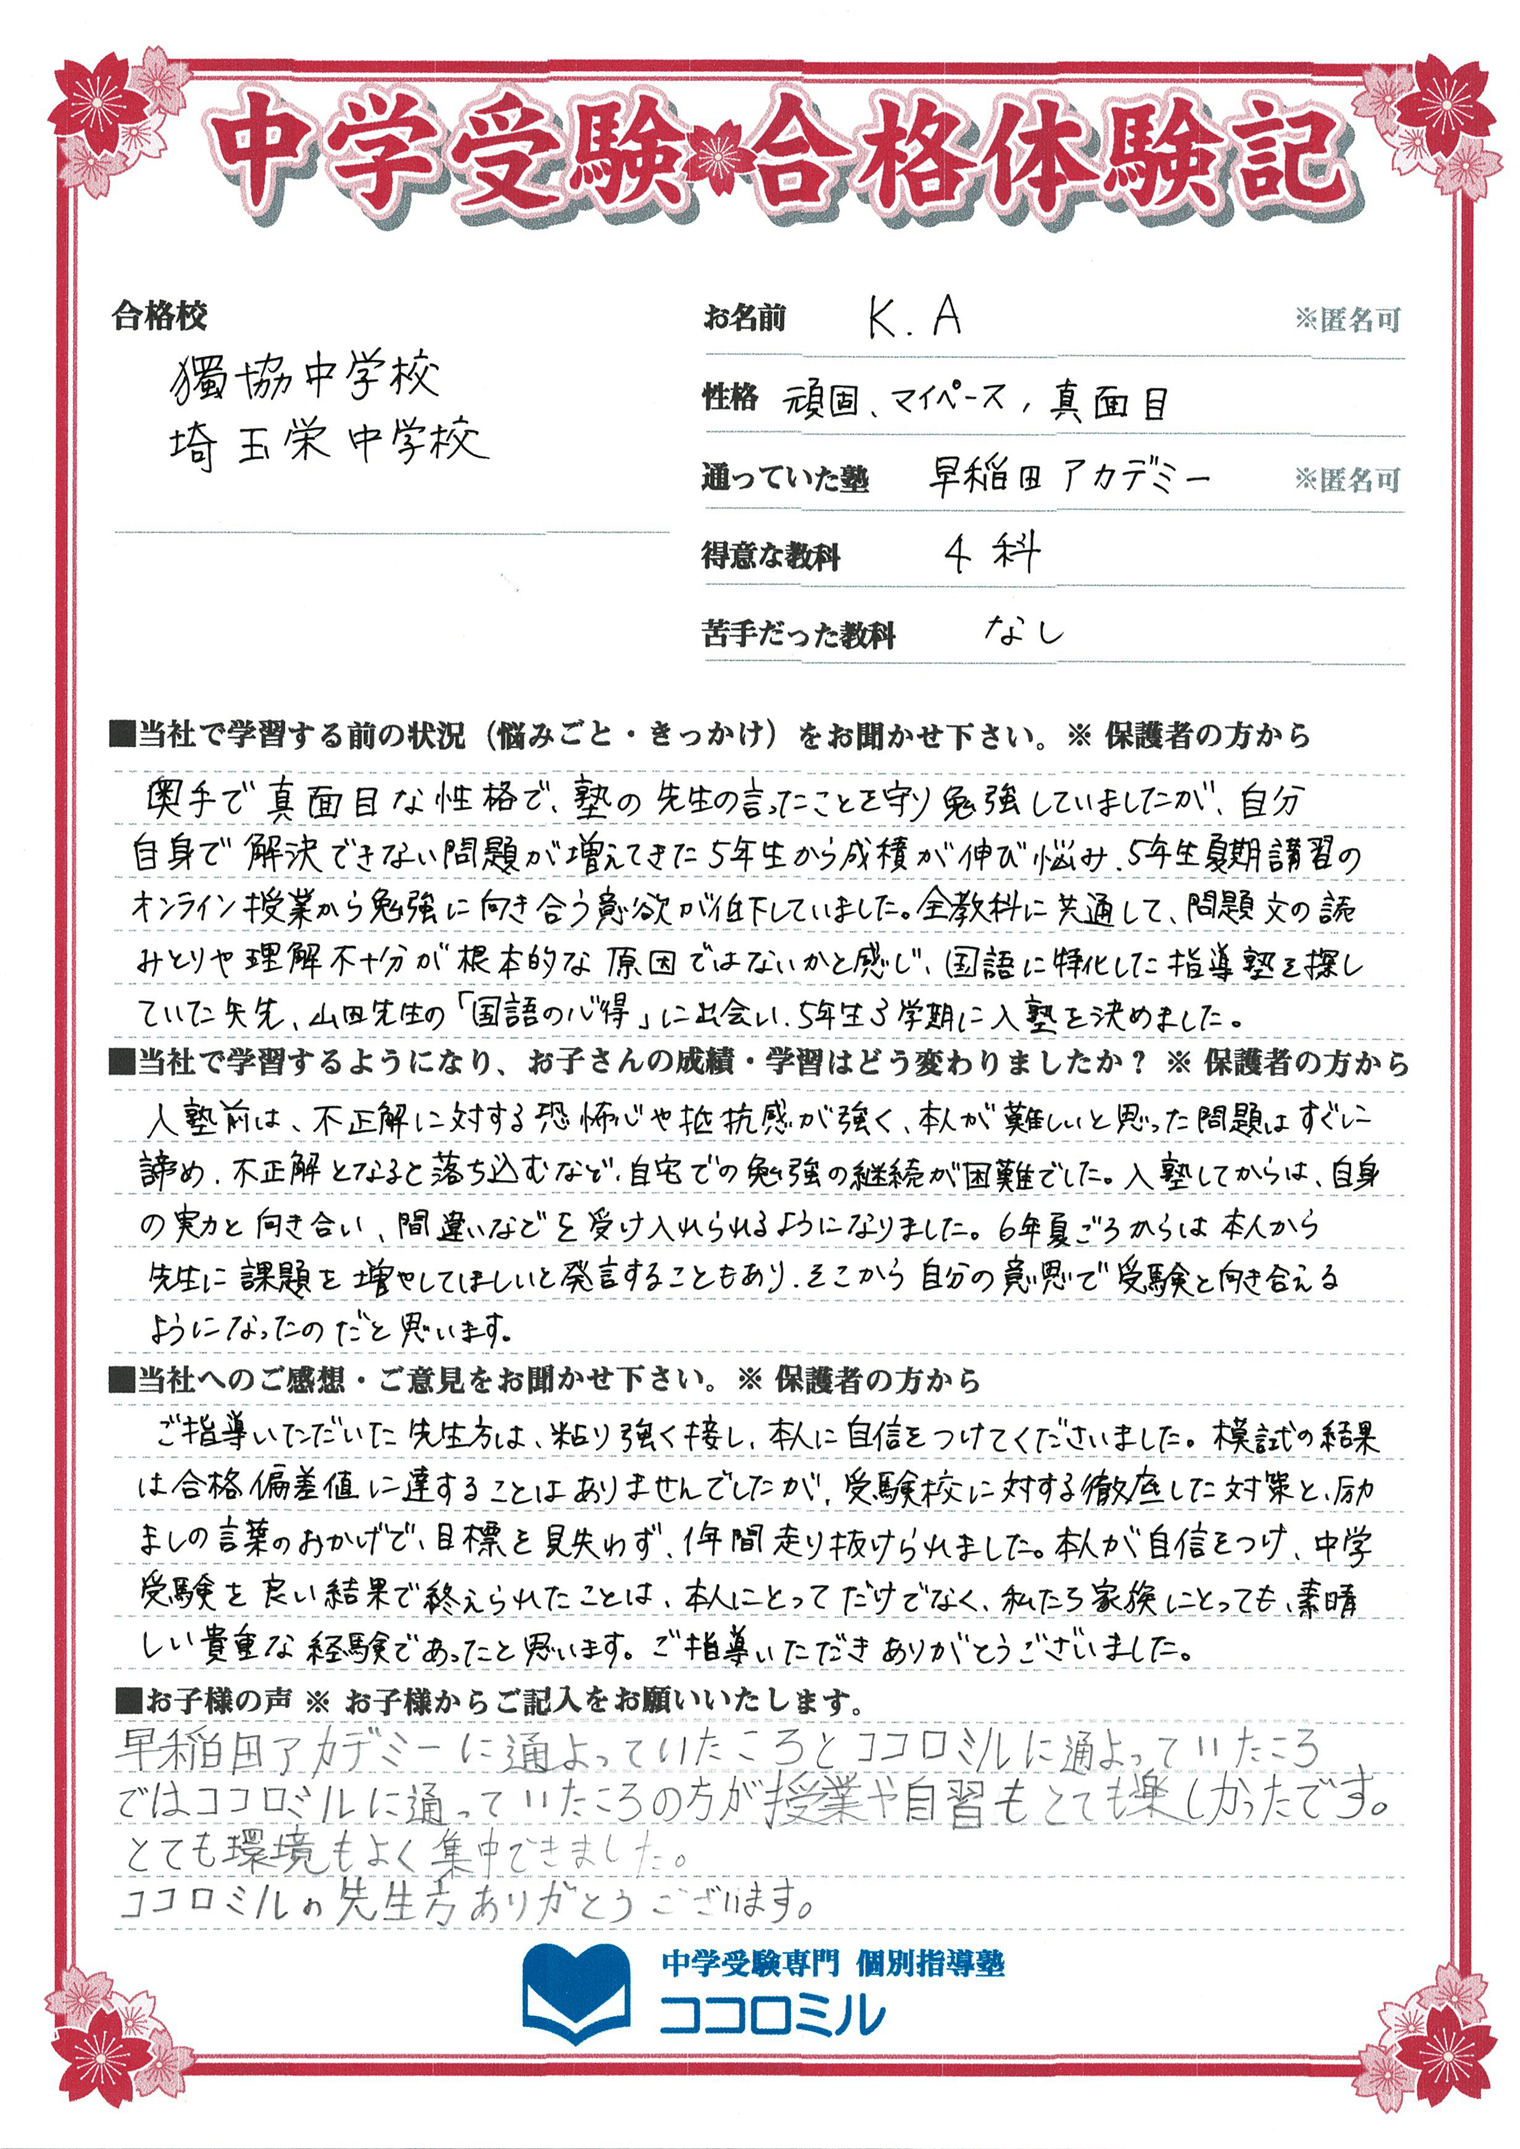 中学受験合格体験記
合格校
獨協中学校
埼玉栄中学校
お名前 K.A ※匿名可
性格 頑固、マイペース、真面目
通っていた塾 早稲田アカデミー ※匿名可
得意な教科 4科
苦手だった教科 なし
■当社で学習する前の状況(悩みごと・きっかけ)をお聞かせ下さい。※ 保護者の方から
奥手で真面目な性格で、塾の先生の言ったことを守り勉強していましたが、自分
自身で解決できない問題が増えてきた5年生から成積が伸び悩み、5年生夏期講習の
オンライン授業から勉強に向き合う意欲が低下していました。全教科に共通して、問題文の読
みとりや理解不十分が根本的な原因ではないかと感じ、国語に特化した指導塾を探し
ていた矢先、山田先生の「国語の心得」に出会い、5年生3学期に入塾を決めました。
■当社で学習するようになり、お子さんの成績・学習はどう変わりましたか？ ※ 保護者の方から
入塾前は、不正解に対する恐怖心や抵抗感が強く、本人が難しいと思った問題はすぐに
諦め、不正解となると落ち込むなど、自宅での勉強の継続が困難でした。入塾してからは、自身
の実力と向き合い、間違いなどを受け入れられるようになりました。6年夏ごろからは本人から
先生に課題を増やしてほしいと発言することもあり、そこから自分の意思で受験と向き合える
ようになったのだと思います。
■当社へのご感想・ご意見をお聞かせ下さい。※ 保護者の方から
ご指導いただいた先生方は、粘り強く接し、本人に自信をつけてくださいました。模試の結果
は合格偏差値に達することはありませんでしたが、受験校に対する徹底した対策と、励
ましの言葉のおかげで、目標を見失わず、1年間走り抜けられました。本人が自信をつけ、中学
受験を良い結果で終えられたことは、本人にとってだけでなく、私たち家族にとっても、素晴
しい貴重な経験であったと思います。ご指導いただきありがとうございました。
■お子様の声 ※ お子様からご記入をお願いいたします。
早稲田アカデミーに通よっていたころとココロミルに通よっていたころ
ではココロミルに通っていたころの方が授業や自習もとても楽しかったです。
とても環境もよく集中できました。
ココロミルの先生方ありがとうございます。
中学受験専門 個別指導塾
ココロミル